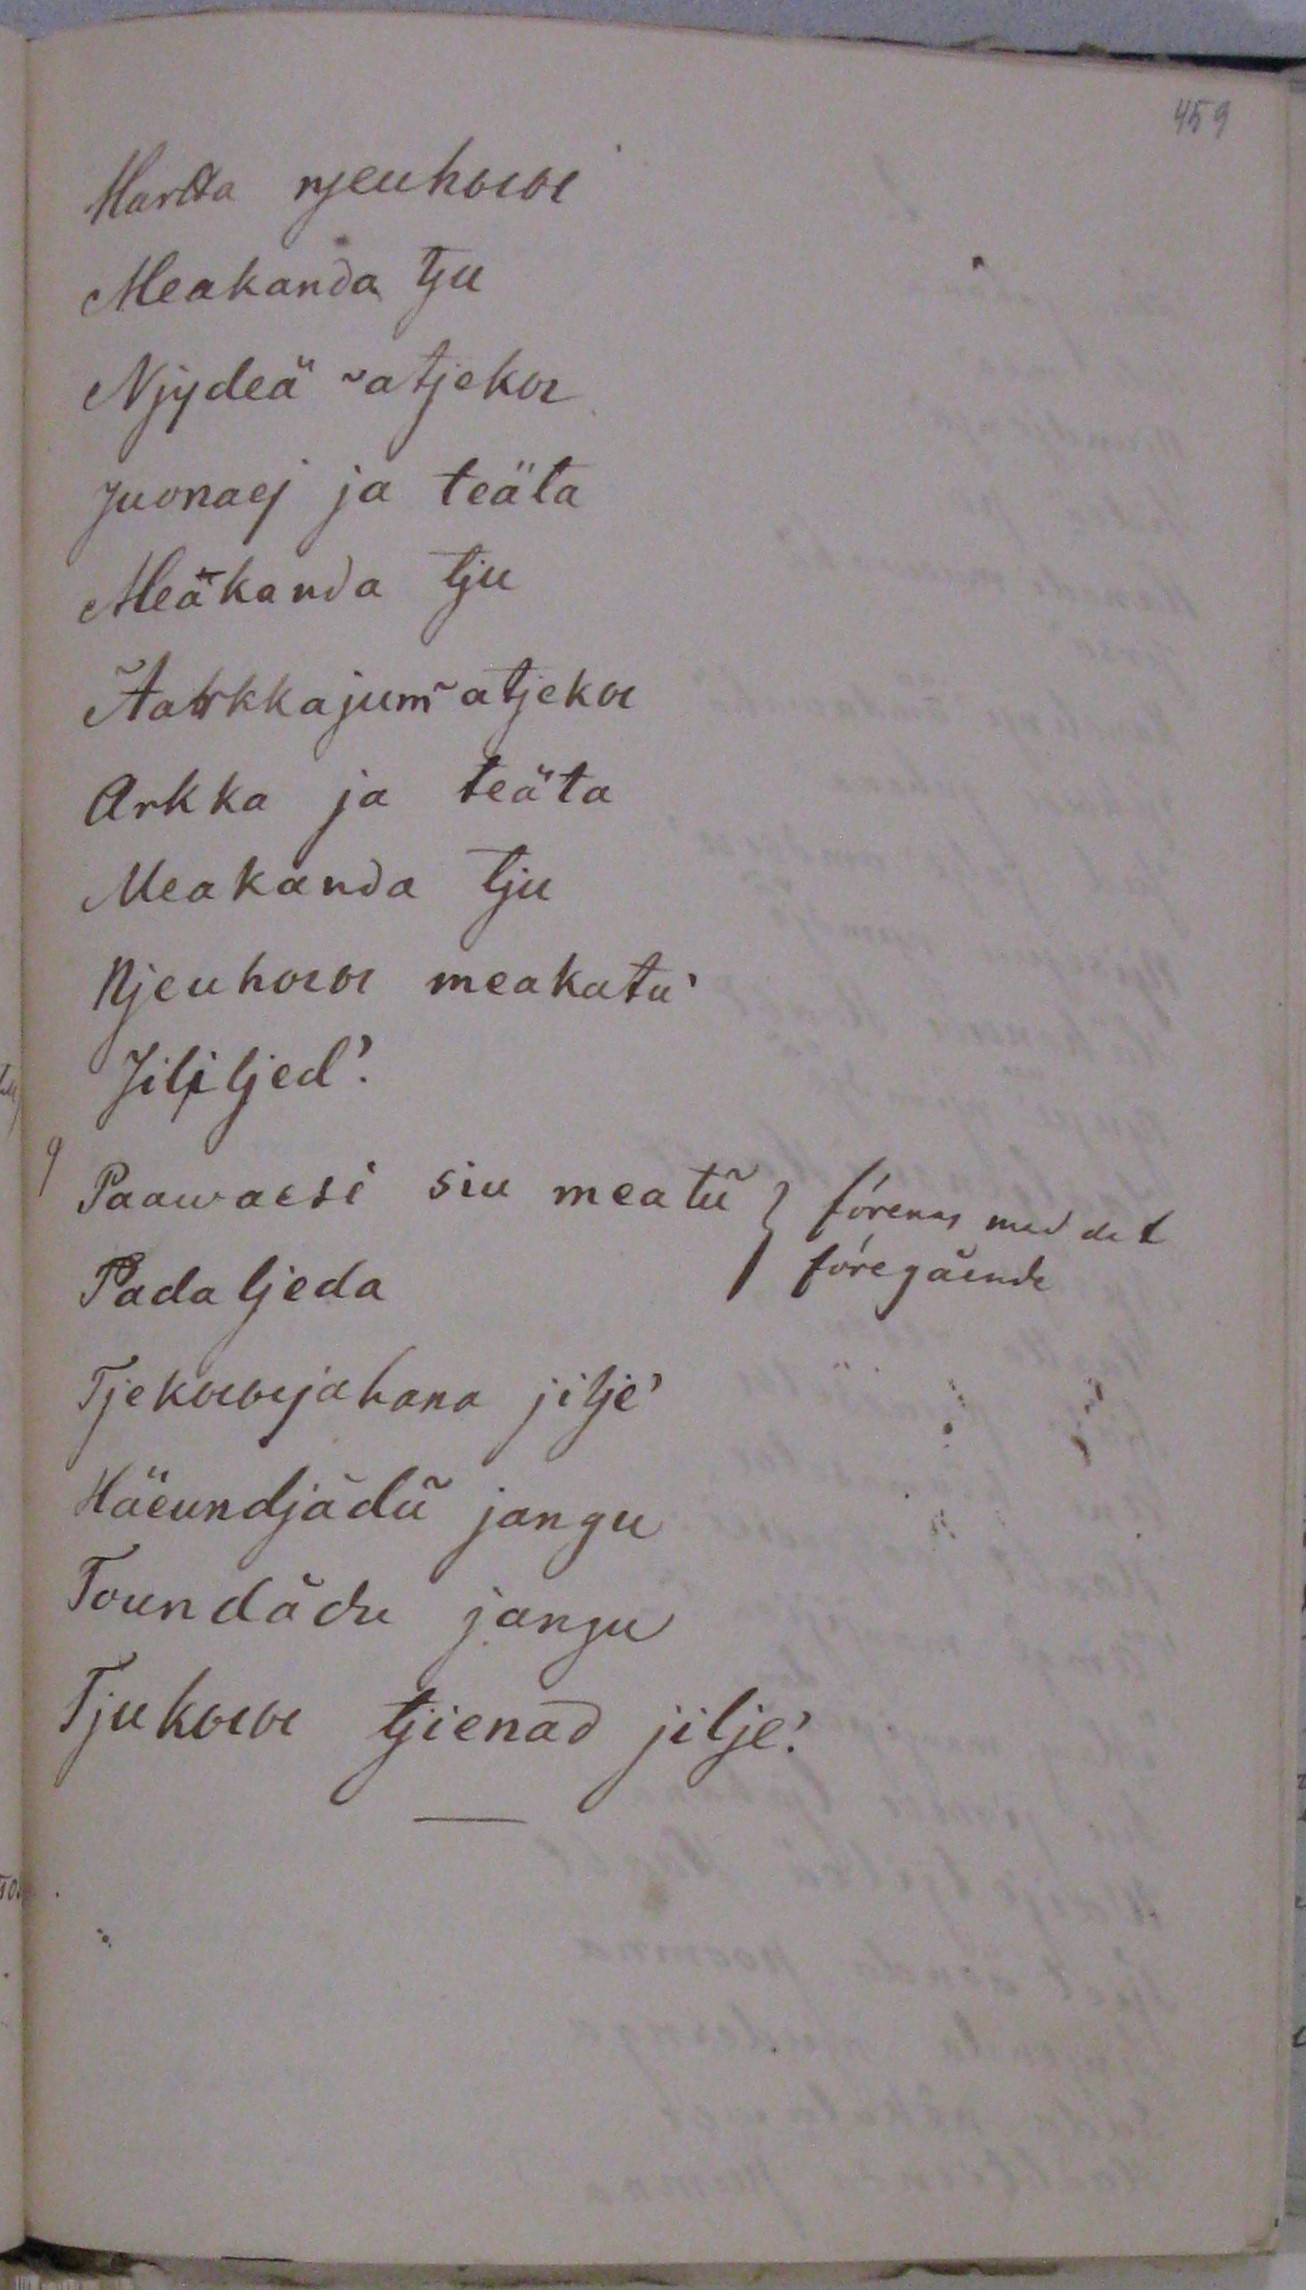 459
Martta njeuhoioi
Meakanda tju
Njydeä ~atjekoi
Juonaej ja teäta
Meäkanda tju
Äarkkajum~atjekoi
Arkka ja teäta
Meakanda tju
Njeuhoioi meakatu'
Jililjed'.
9
Paawaesi siu meatũ } förenas med det
föregående
Padaljeda
Tjekoioijahana jilje'
Häeundjãdũ jangu
Toundãdu jangu
Tjukoioi tjienad jilje'.